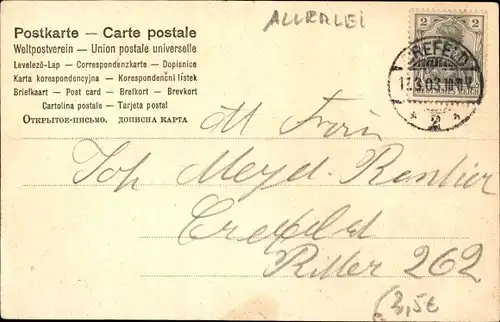 ALLERLEI
Postkarte — Carte postale
Weltpostverein — Union postale universelle
Levelező-Lap — Correspondenzkarte — Dopisnice
Karta korespondencyjna — Korespondenční lístek
Briefkaart — Post card — Brefkort — Brevkort
Cartolina postale — Tarjeta postal
Открытое-письмо. дописна карта
2 2
DEUTSCHES REICH
CREFELD
2
Joh Meyd. Rentier
Crefeld
Ritter 262
3,5€